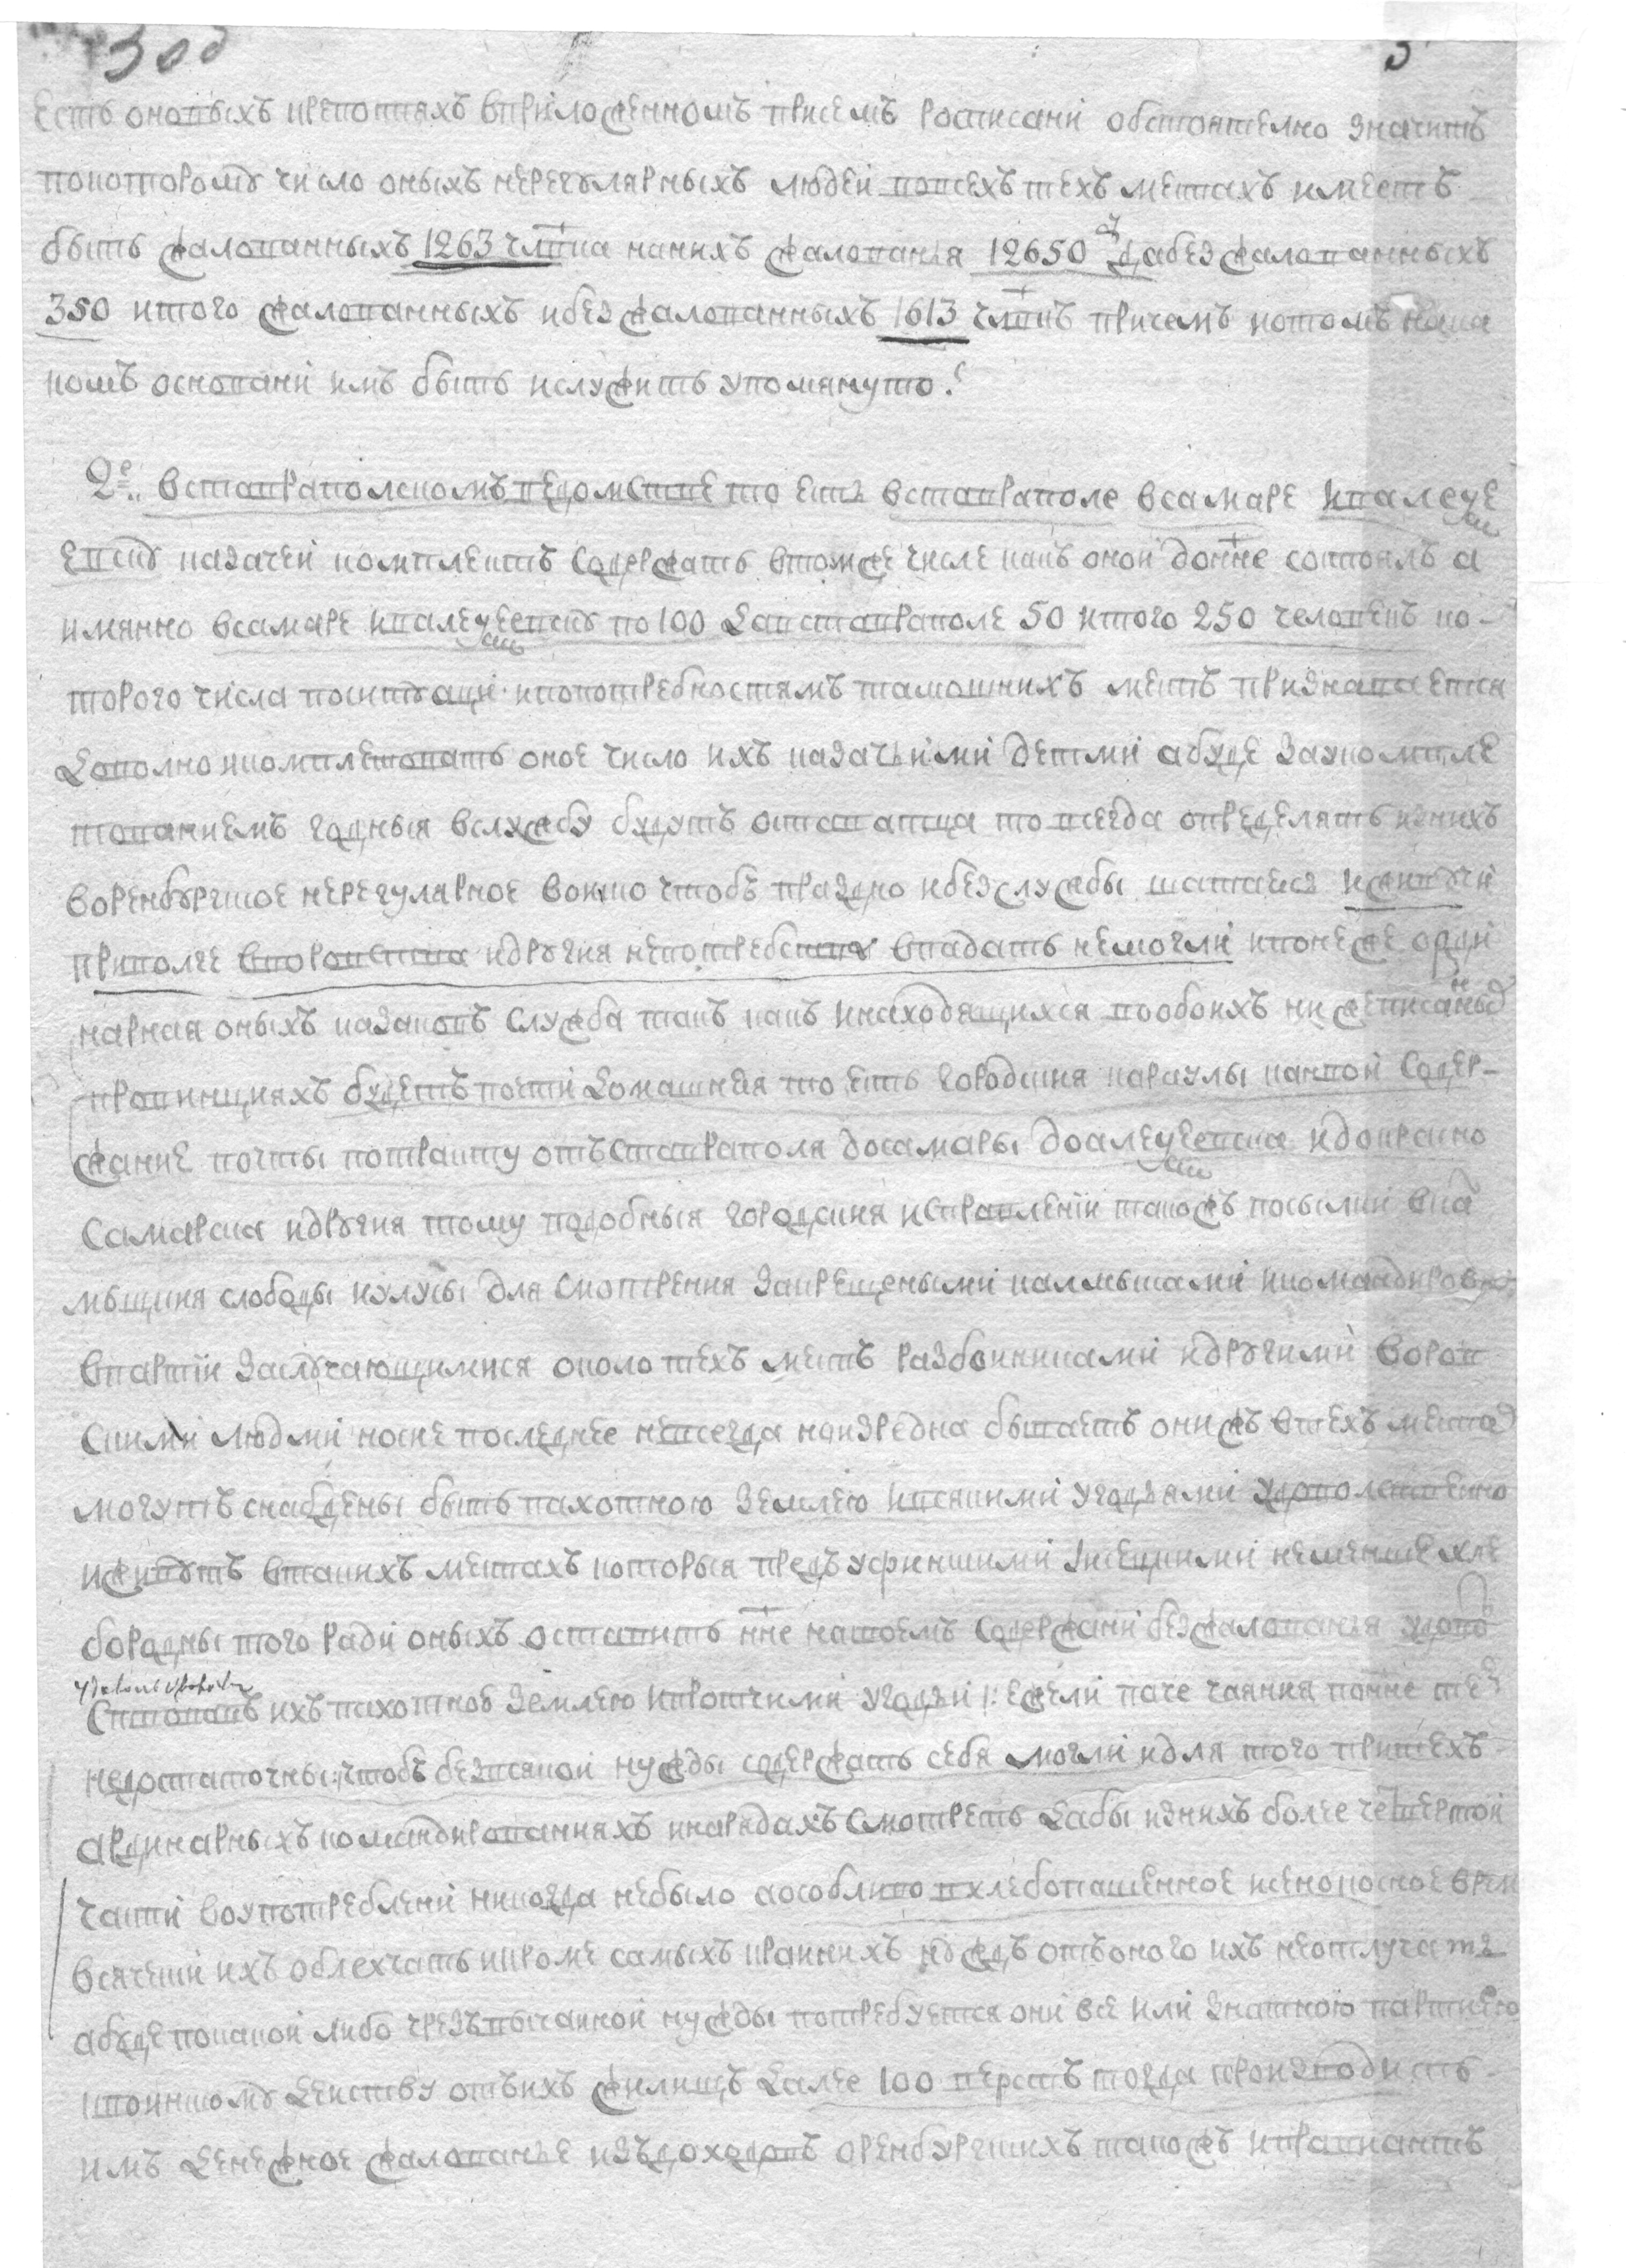 30д 3
есть оновыхъ крепостяхъ вприложенномъ присемъ росписани обстоятелно значитъ
покоторому число оныхъ нерегулярныхъ людей повсехъ техъ местахъ имеетъ
быть жалованныхъ 1263 члвка нанихъ жалованья 12650 дабезжалованныхъ
350 итого жалованныхъ ибезжалованныхъ 1613 члвкъ причемъ
комъ основани имъ быть ислужить упомянуто.
2е.. вставрапольскомъ ведомстве то есть вставраполе всамаре
казачей комплектъ содержать втомже числе какъ оной доныне состоялъ а
имянно всамаре по 100 давставраполе 50 итого 250 человекъ ко-
торого числа поситуаци ипопотребностямъ тамошнихъ местъ признаваетца
доволно икомплектовать оное число ихъ казачьими детми абуде заукомпле
тованиемъ годныя вслужбу будутъ оставатца то всегда определять изнихъ
воренбургское нерегулярное воиско чтобъ праздно ибезслужбы шатаяся иживучи
приволье вворовства идругия непотребства впадать немогли ипонеже орди
нарная оныхъ казаковъ служба такъ какъ инаходящихся пообоихъ нижеписаныхъ
правинцияхъ будетъ почти домашняя то есть городския караулы канвой содер-
жание почты потракту отъставраполя досамары доалексеевска идокрасно
самарска идругия тому подобныя городския исправлени такожъ посылки вка
мыцкия слободы иулусы для смотрения закрещеными калмыками икомандирова
впартии заслучающимися около техъ местъ разбойниками идругими воров
скими людми носие последнее невсегда ноизредка бываетъ онижъ втехъ местах
могутъ снабдены быть пахотною землею ивсякими угодьями удоволственно
иживутъ втакихъ местах которыя предъ уфинскими неменше хле
бородны того ради оныхъ оставить нне натоемъ содержани безжалованья удово
ствовавъ ихъ пахотною землею ипротчими угодьи /: ежели паче чаяния поныне те
недостаточны:/ чтобъ безвсякой нужды содержать себя могли идля того притехъ
ардинарныхъ командированияхъ инарядахъ смотреть дабы изнихъ более четвертой
части воупотреблени никогда небыло аособливо вхлебопашенное исенокосное врем
всячески ихъ облехчать икроме самыхъ краинихъ нуждъ отъоного ихъ неотлучать
абуде покакой либо чрезъвычаиной нужды потребуется они все или знатною партиею
квоинскому деиству отъихъ жилищъ далее 100 верстъ тогда производить
имъ денежное жалованье изъдоходовъ оренбургскихъ такожъ ипровиантъ